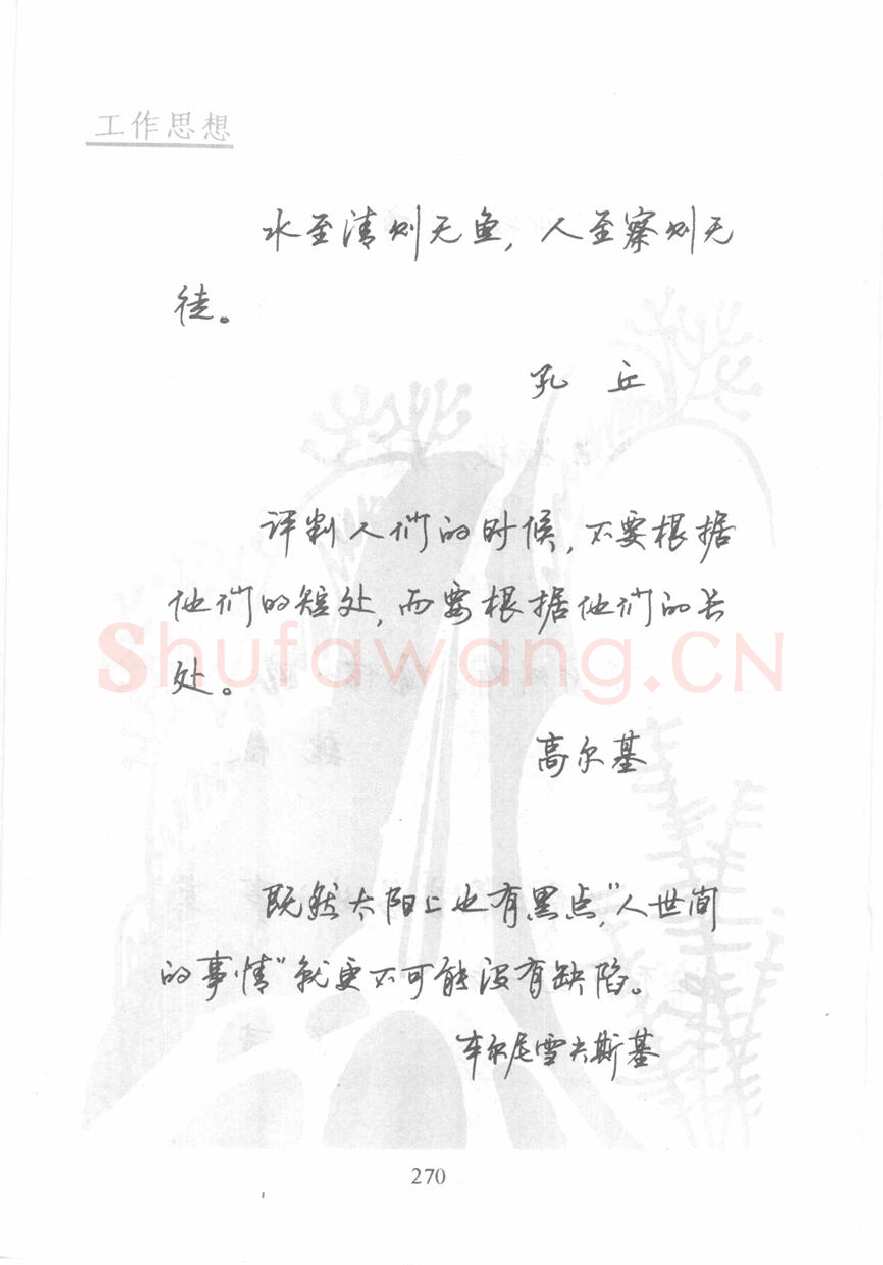 工作思想
水至清则无鱼，人至察则无
徒。
孔 丘
评判人们的时候，不要根据
他们的短处，而要根据他们的长
处。
高尔基
Shufawang.CN
既然太阳上也有黑点，“人世间
的事情”就更不可能没有缺陷。
车尔尼雪夫斯基
270